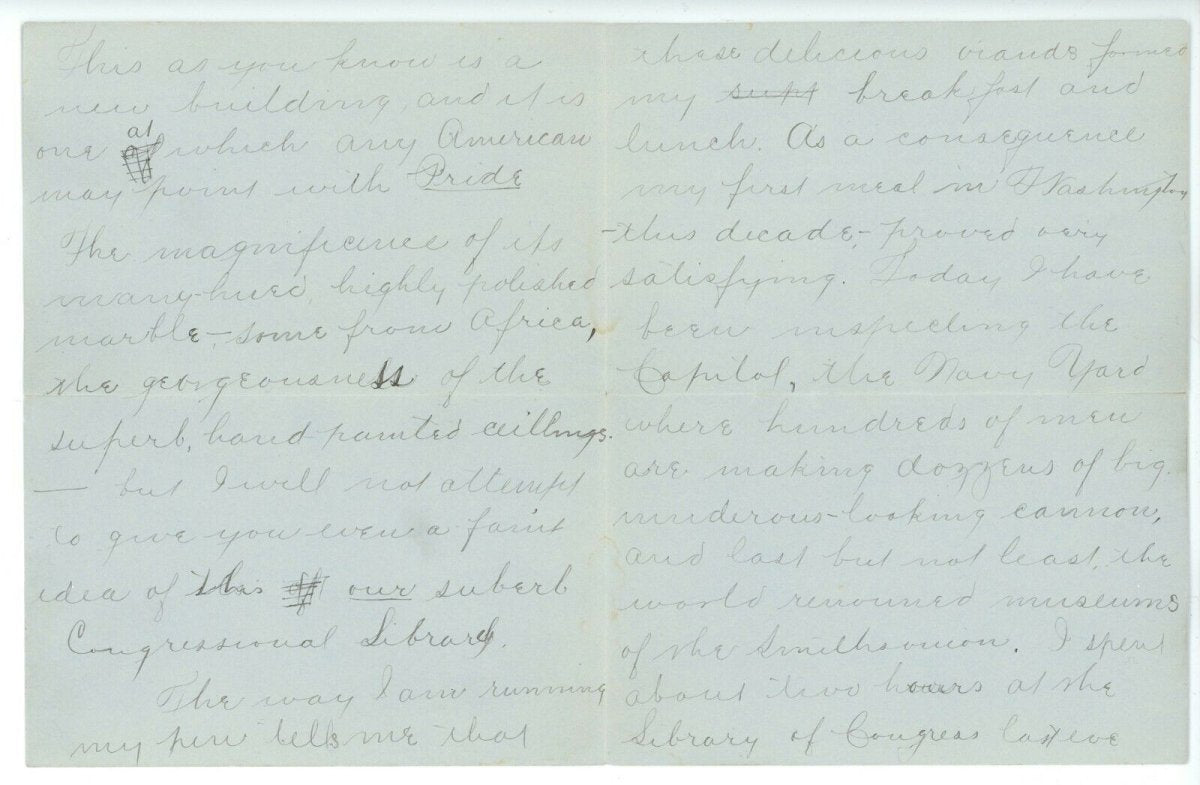 This as you know is a
new building, and it is
one at which any American
may point with Pride
The magnificence of its
many-hued, highly polished
marble,—some from Africa,
the georgeousness of the
superb, hand-painted ceillings.
— but I will not attempt
to give you even a faint
idea of this our suberb
Congressional Library.
The way I am running
my pen tells me that
these delicious viands formed
my supt breakfast and
lunch. As a consequence
my first meal in Washington
-this decade,- proved very
satisfying. Today I have
been inspecting the
Capitol, the Navy Yard
where hundreds of men
are making dozzens of big
muderous-looking cannon,
and last but not least, the
world renouned museums
of the Smithsonion. I spent
about two hours at the
Library of Congress last eve